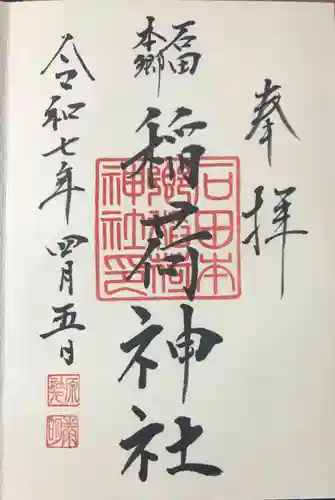 奉拝
石田
本郷
稲荷神社
石田本
郷稲荷
神社印
令和七年四月五日